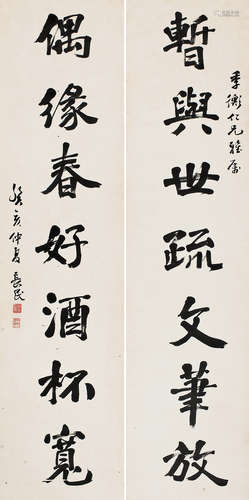 季衡仁兄雅屬
暫與世疏文筆放
偶緣春好酒杯寬
癸亥仲夏 長民